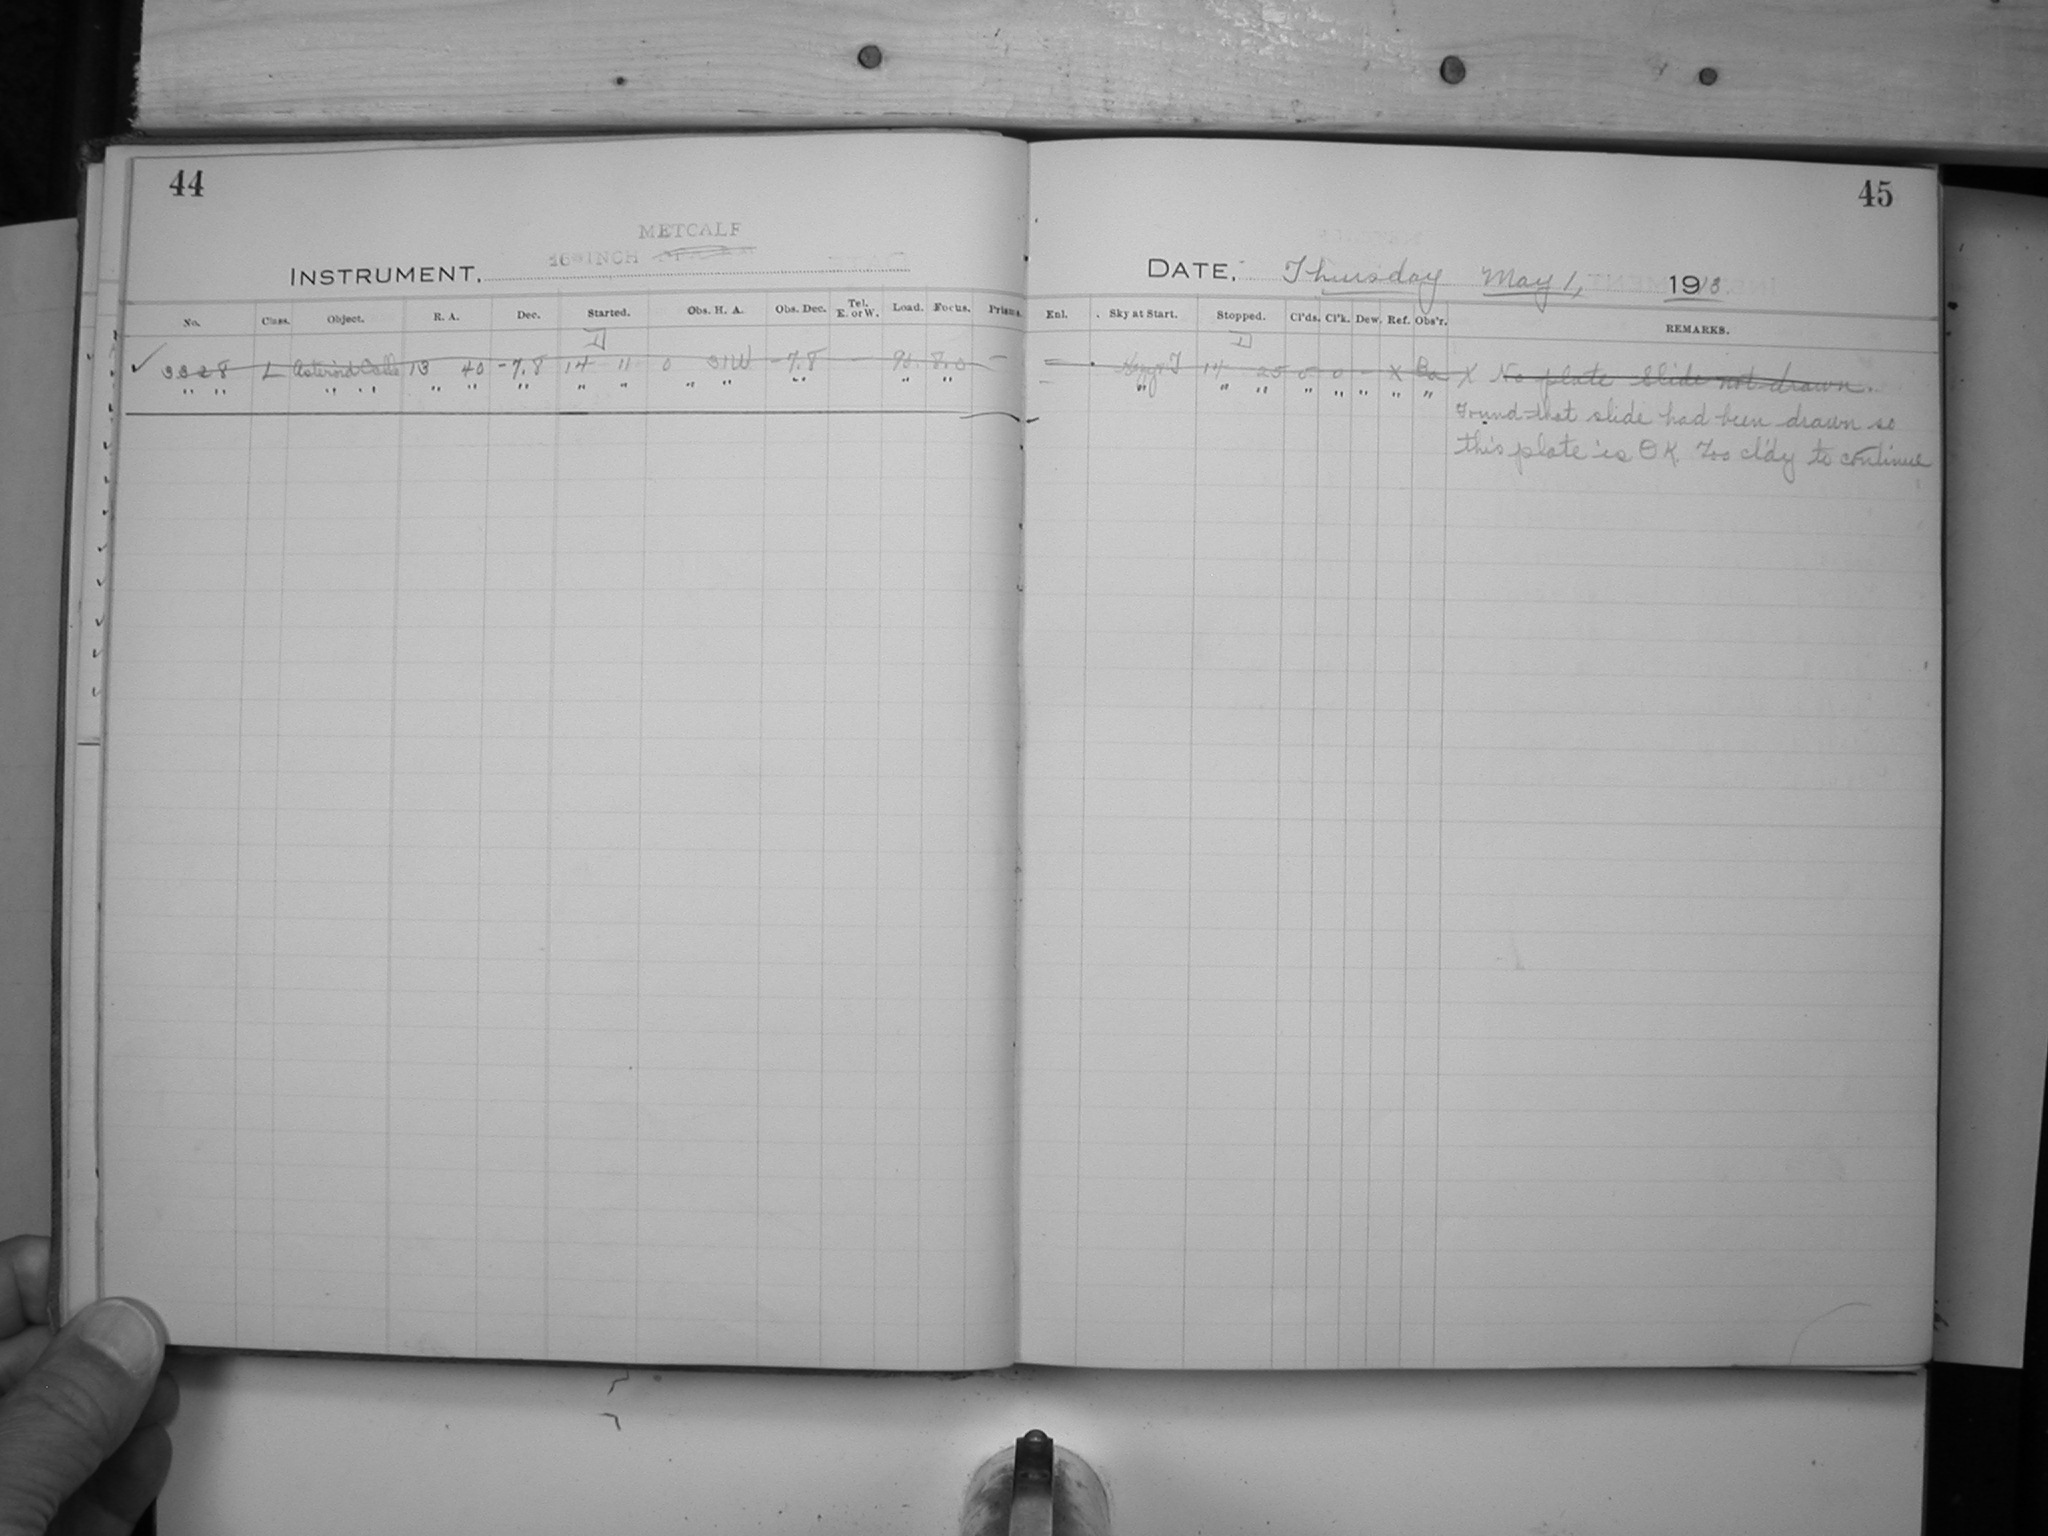 44
METCALF
INSTRUMENT, 16-INCH
No. Class. Object. R. A. Dec. Started. Obs. H. A. Obs. Dec. Tel. E. or W. Load. Focus. Prisms.
3328 L Asteroid 13 40 -7.8 14 11 0 31W -7.8 - 90. 8.0 -
" " " " " " " " " " " " " " "
45
DATE, Thursday May 1, 1913
Enl. Sky at Start. Stopped. Cl'ds. Cl'k. Dew. Ref. Obs'r. REMARKS.
14 25 0 0 - X Ba X No plate slide not drawn.
" " " " " " " "
Found that slide had been drawn so
this plate is OK. Too cl'dy to continue